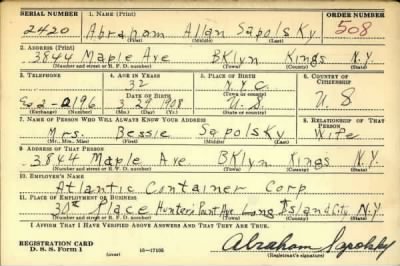 SERIAL NUMBER 1. NAME (Print) ORDER NUMBER
2420 Abraham Allan Sapolsky 508
(First) (Middle) (Last)
2. ADDRESS (Print)
3844 Maple Ave BKlyn Kings N.Y.
(Number and street or R. F. D. number) (Town) (County) (State)
3. TELEPHONE 4. AGE IN YEARS 5. PLACE OF BIRTH 6. COUNTRY OF CITIZENSHIP
32 N.Y.C.
DATE OF BIRTH (Town or county)
2-0196 3 29 1908 U.S. U S
(Exchange) (Number) (Mo.) (Day) (Yr.) (State or country)
7. NAME OF PERSON WHO WILL ALWAYS KNOW YOUR ADDRESS 8. RELATIONSHIP OF THAT PERSON
Mrs. Bessie Sapolsky Wife
(Mr., Mrs., Miss) (First) (Middle) (Last)
9. ADDRESS OF THAT PERSON
3844 Maple Ave BKlyn Kings N.Y.
(Number and street or R. F. D. number) (Town) (County) (State)
10. EMPLOYER'S NAME
Atlantic Container Corp
11. PLACE OF EMPLOYMENT OR BUSINESS
30th Place Hunters Point Ave Long Island City N.Y
(Number and street or R. F. D. number) (Town) (County) (State)
I AFFIRM THAT I HAVE VERIFIED ABOVE ANSWERS AND THAT THEY ARE TRUE.
REGISTRATION CARD
D. S. S. Form 1 (over) 16—17105 Abraham Sapolsky
(Registrant's signature)